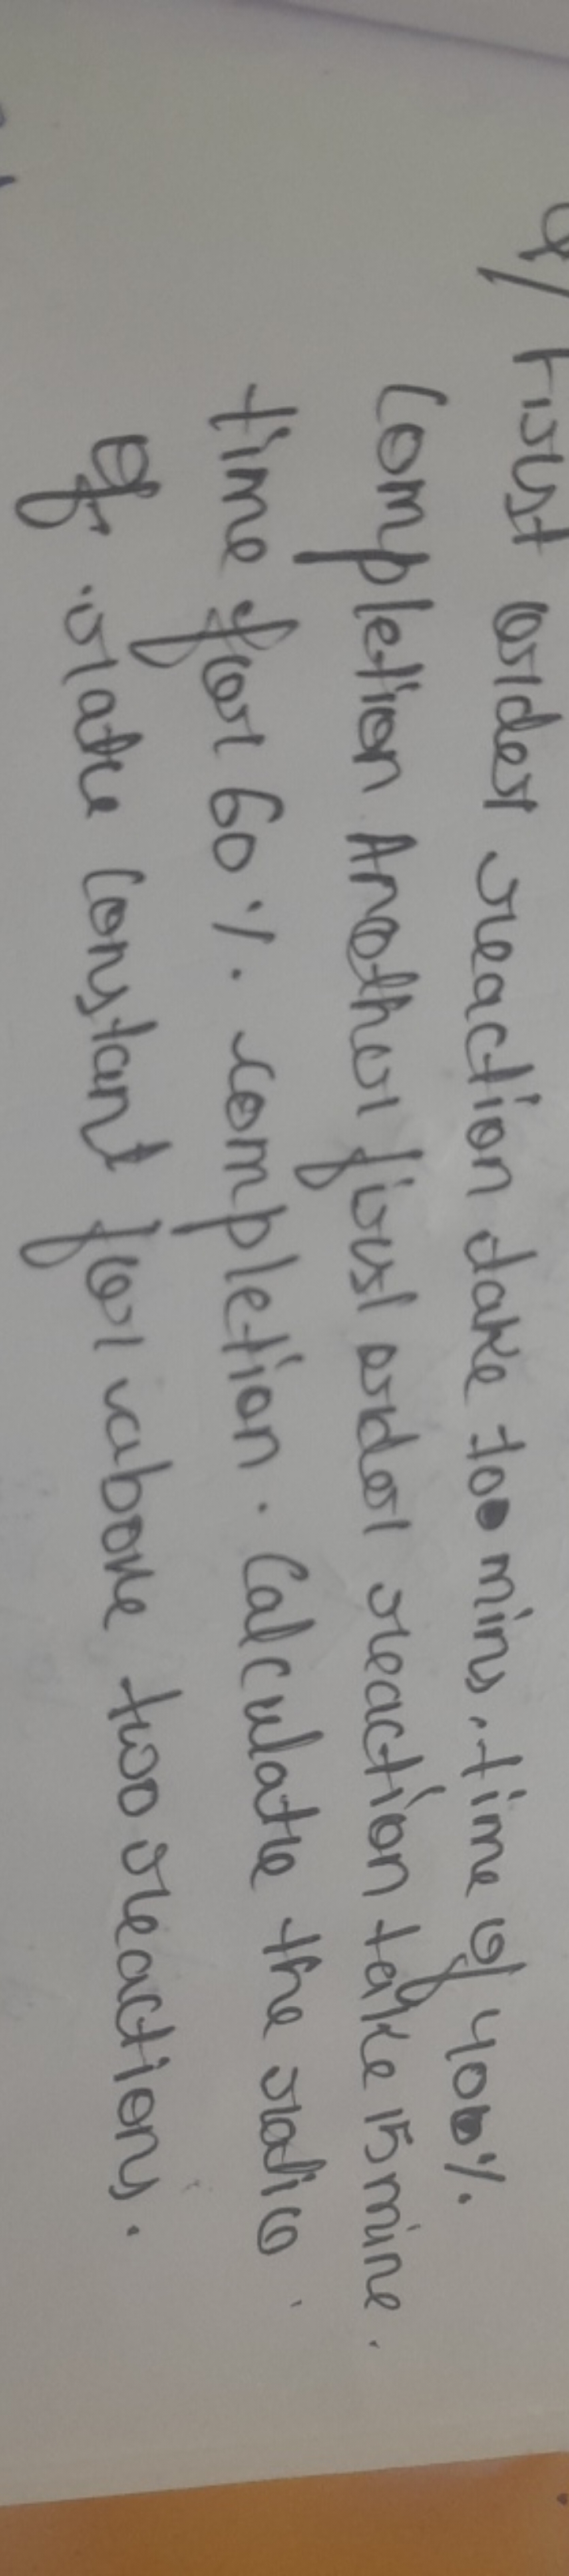 Q/ First order reaction take 10 mins, time of 40%.
Completion Another first order reaction take 15 mine.
time for 60%. completion. Calculate the ratio
of rate constant for above two reactions.